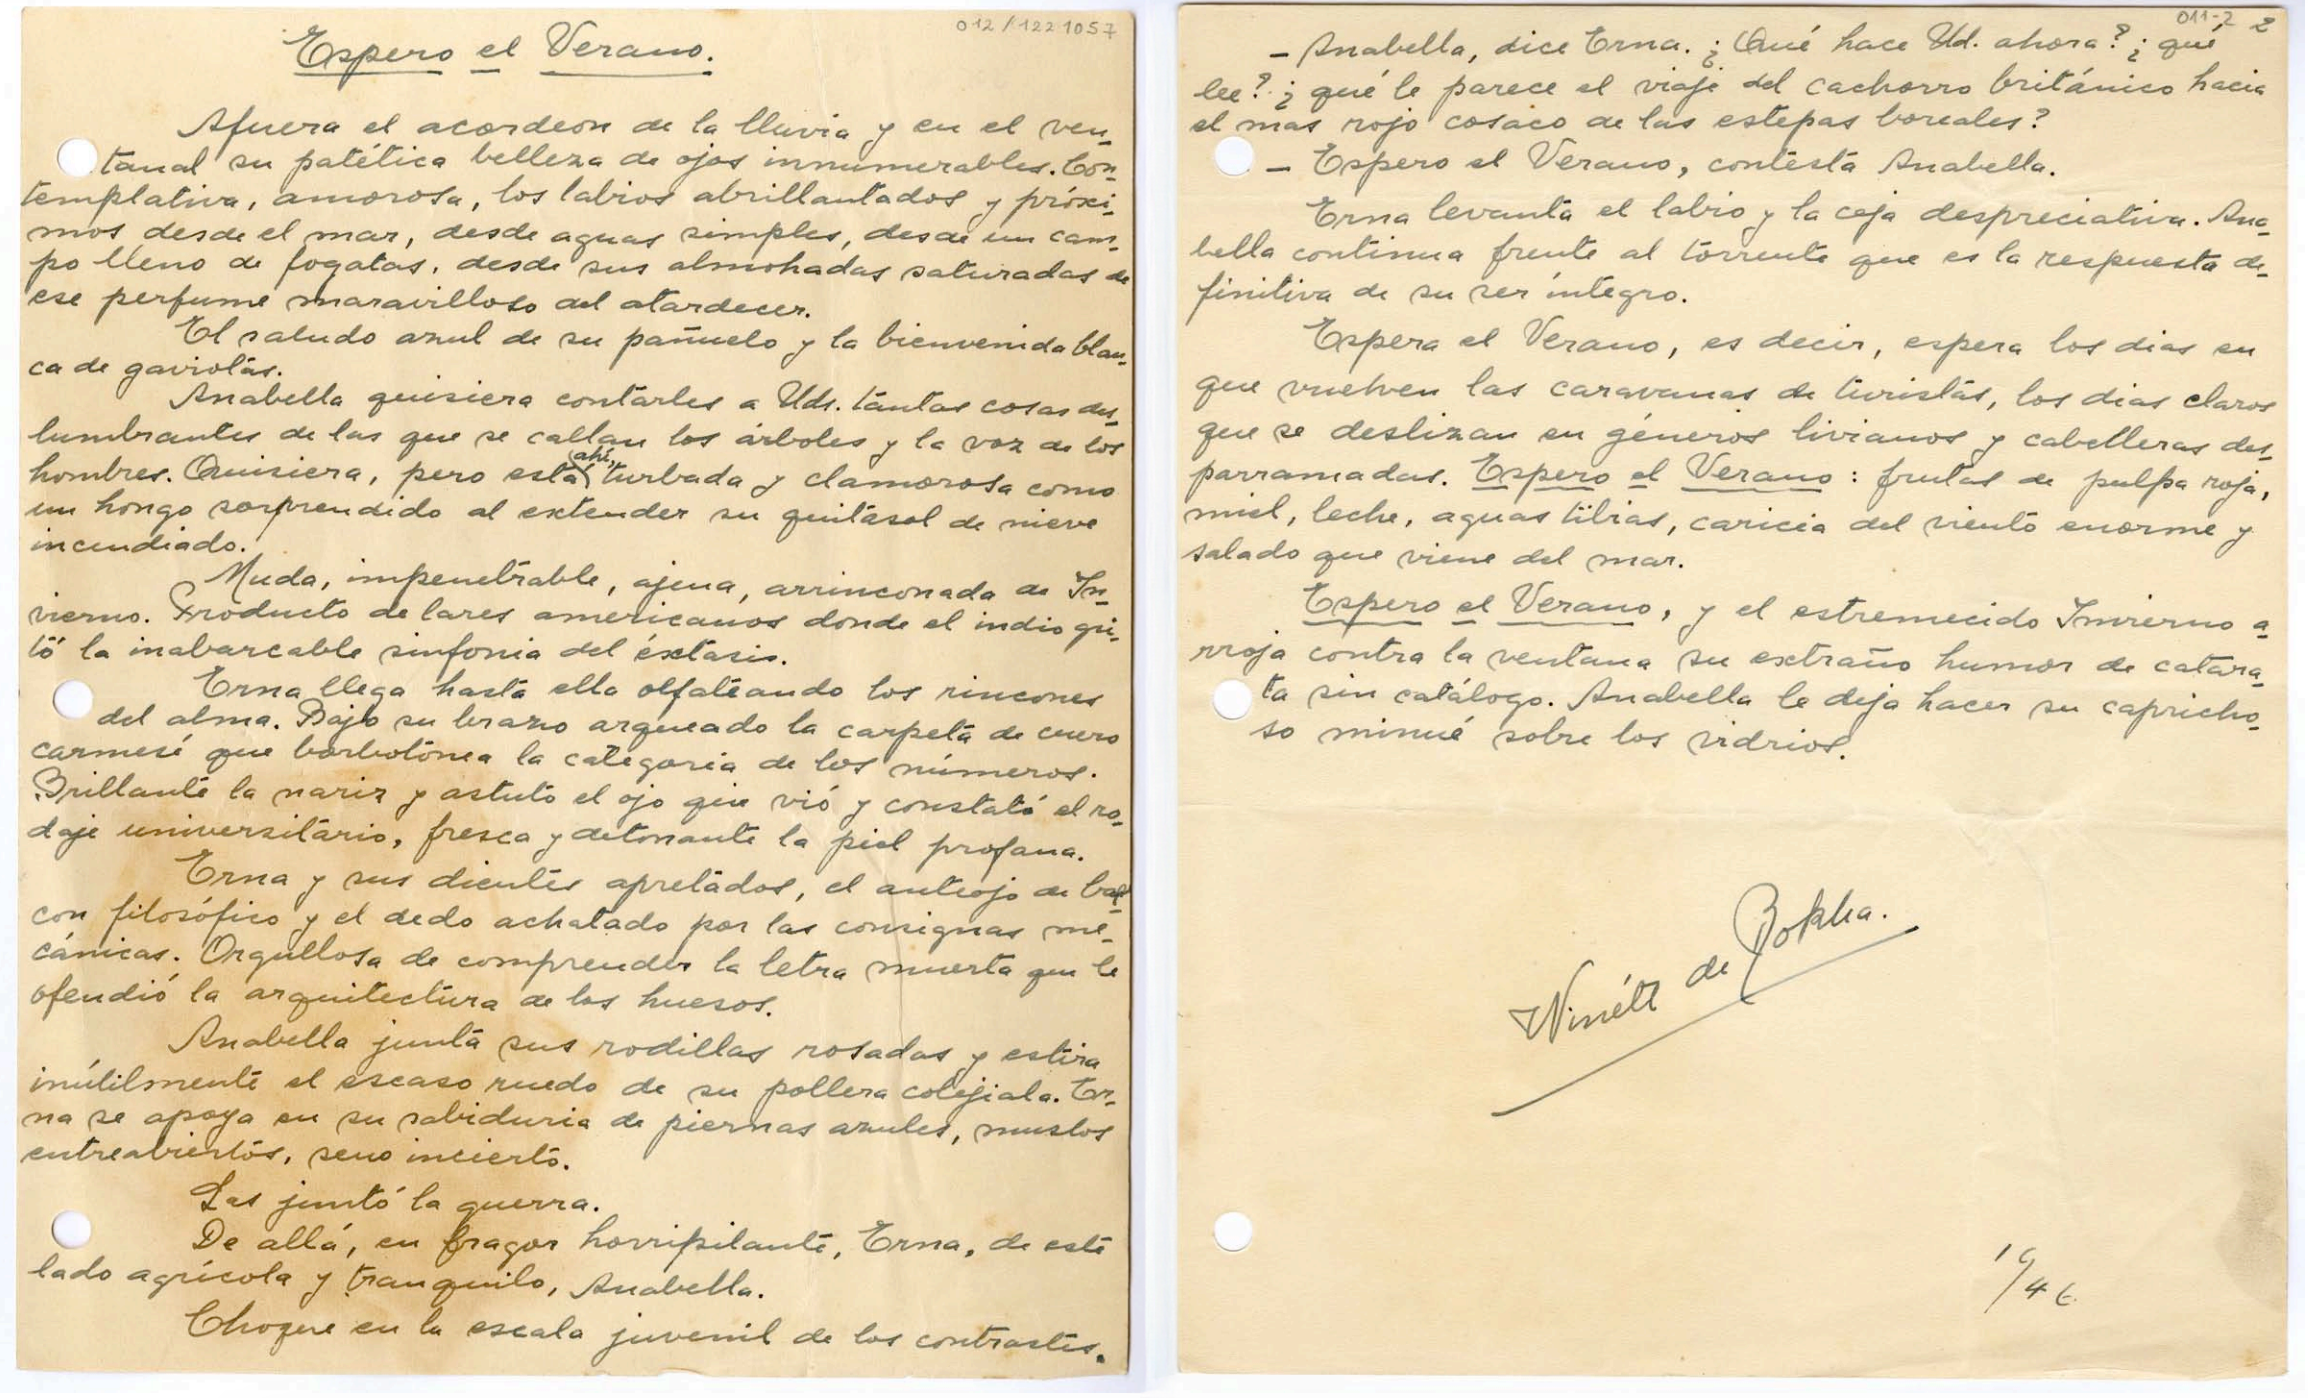 012/1221057
Espero el Verano.
Afuera el acordeon de la lluvia y en el ven-
tanal su patética belleza de ojos innumerables. Con-
templativa, amorosa, los labios abrillantados y próxi-
mos desde el mar, desde aguas simples, desde un cam-
po lleno de fogatas, desde sus almohadas saturadas de
ese perfume maravilloso del atardecer.
El saludo azul de su pañuelo y la bienvenida blan-
ca de gaviotas.
Anabella quisiera contarles a Uds. tantas cosas des-
lumbrantes de las que se callan los árboles y la voz de los
hombres. Quisiera, pero está ahí, turbada y clamorosa como
un hongo sorprendido al extender su quitasol de nieve
incendiado.
Muda, impenetrable, ajena, arrinconada de In-
vierno. Producto de lares americanos donde el indio gri-
tó la inabarcable sinfonia del éxtasis.
Erna llega hasta ella olfateando los rincones
del alma. Bajo su brazo arqueado la carpeta de cuero
carmesí que borbotonea la categoria de los números.
Brillante la nariz y astuto el ojo que vió y constató el ro-
daje universitario, fresca y detonante la piel profana.
Erna y sus dientes apretados, el anteojo de bal-
con filosófico y el dedo achatado por las consignas me-
cánicas. Orgullosa de comprender la letra muerta que le
ofendió la arquitectura de los huesos.
Anabella junta sus rodillas rosadas y estira
inútilmente el escaso ruedo de su pollera colejiala. Er-
na se apoya en su sabiduria de piernas azules, muslos
entreabiertos, seno incierto.
Las juntó la guerra.
De allá, en fragor horripilante, Erna, de este
lado agrícola y tranquilo, Anabella.
Choque en la escala juvenil de los contrastes.
011-2 2
- Anabella, dice Erna. ¿Qué hace Ud. ahora? ¿qué
lee? ¿qué le parece el viaje del cachorro británico hacia
el mas rojo cosaco de las estepas boreales?
- Espero el Verano, contesta Anabella.
Erna levanta el labio y la ceja despreciativa. Ana-
bella continua frente al torrente que es la respuesta de-
finitiva de su ser íntegro.
Espera el Verano, es decir, espera los dias en
que vuelven las caravanas de turistas, los dias claros
que se deslizan en géneros livianos y cabelleras des-
parramadas. Espero el Verano: frutas de pulpa roja,
miel, leche, aguas tibias, caricia del viento enorme y
salado que viene del mar.
Espero el Verano, y el estremecido Invierno a-
rroja contra la ventana su extraño humor de catara-
ta sin catálogo. Anabella le deja hacer su capricho-
so minué sobre los vidrios.
Winétt de Rokha.
19/46